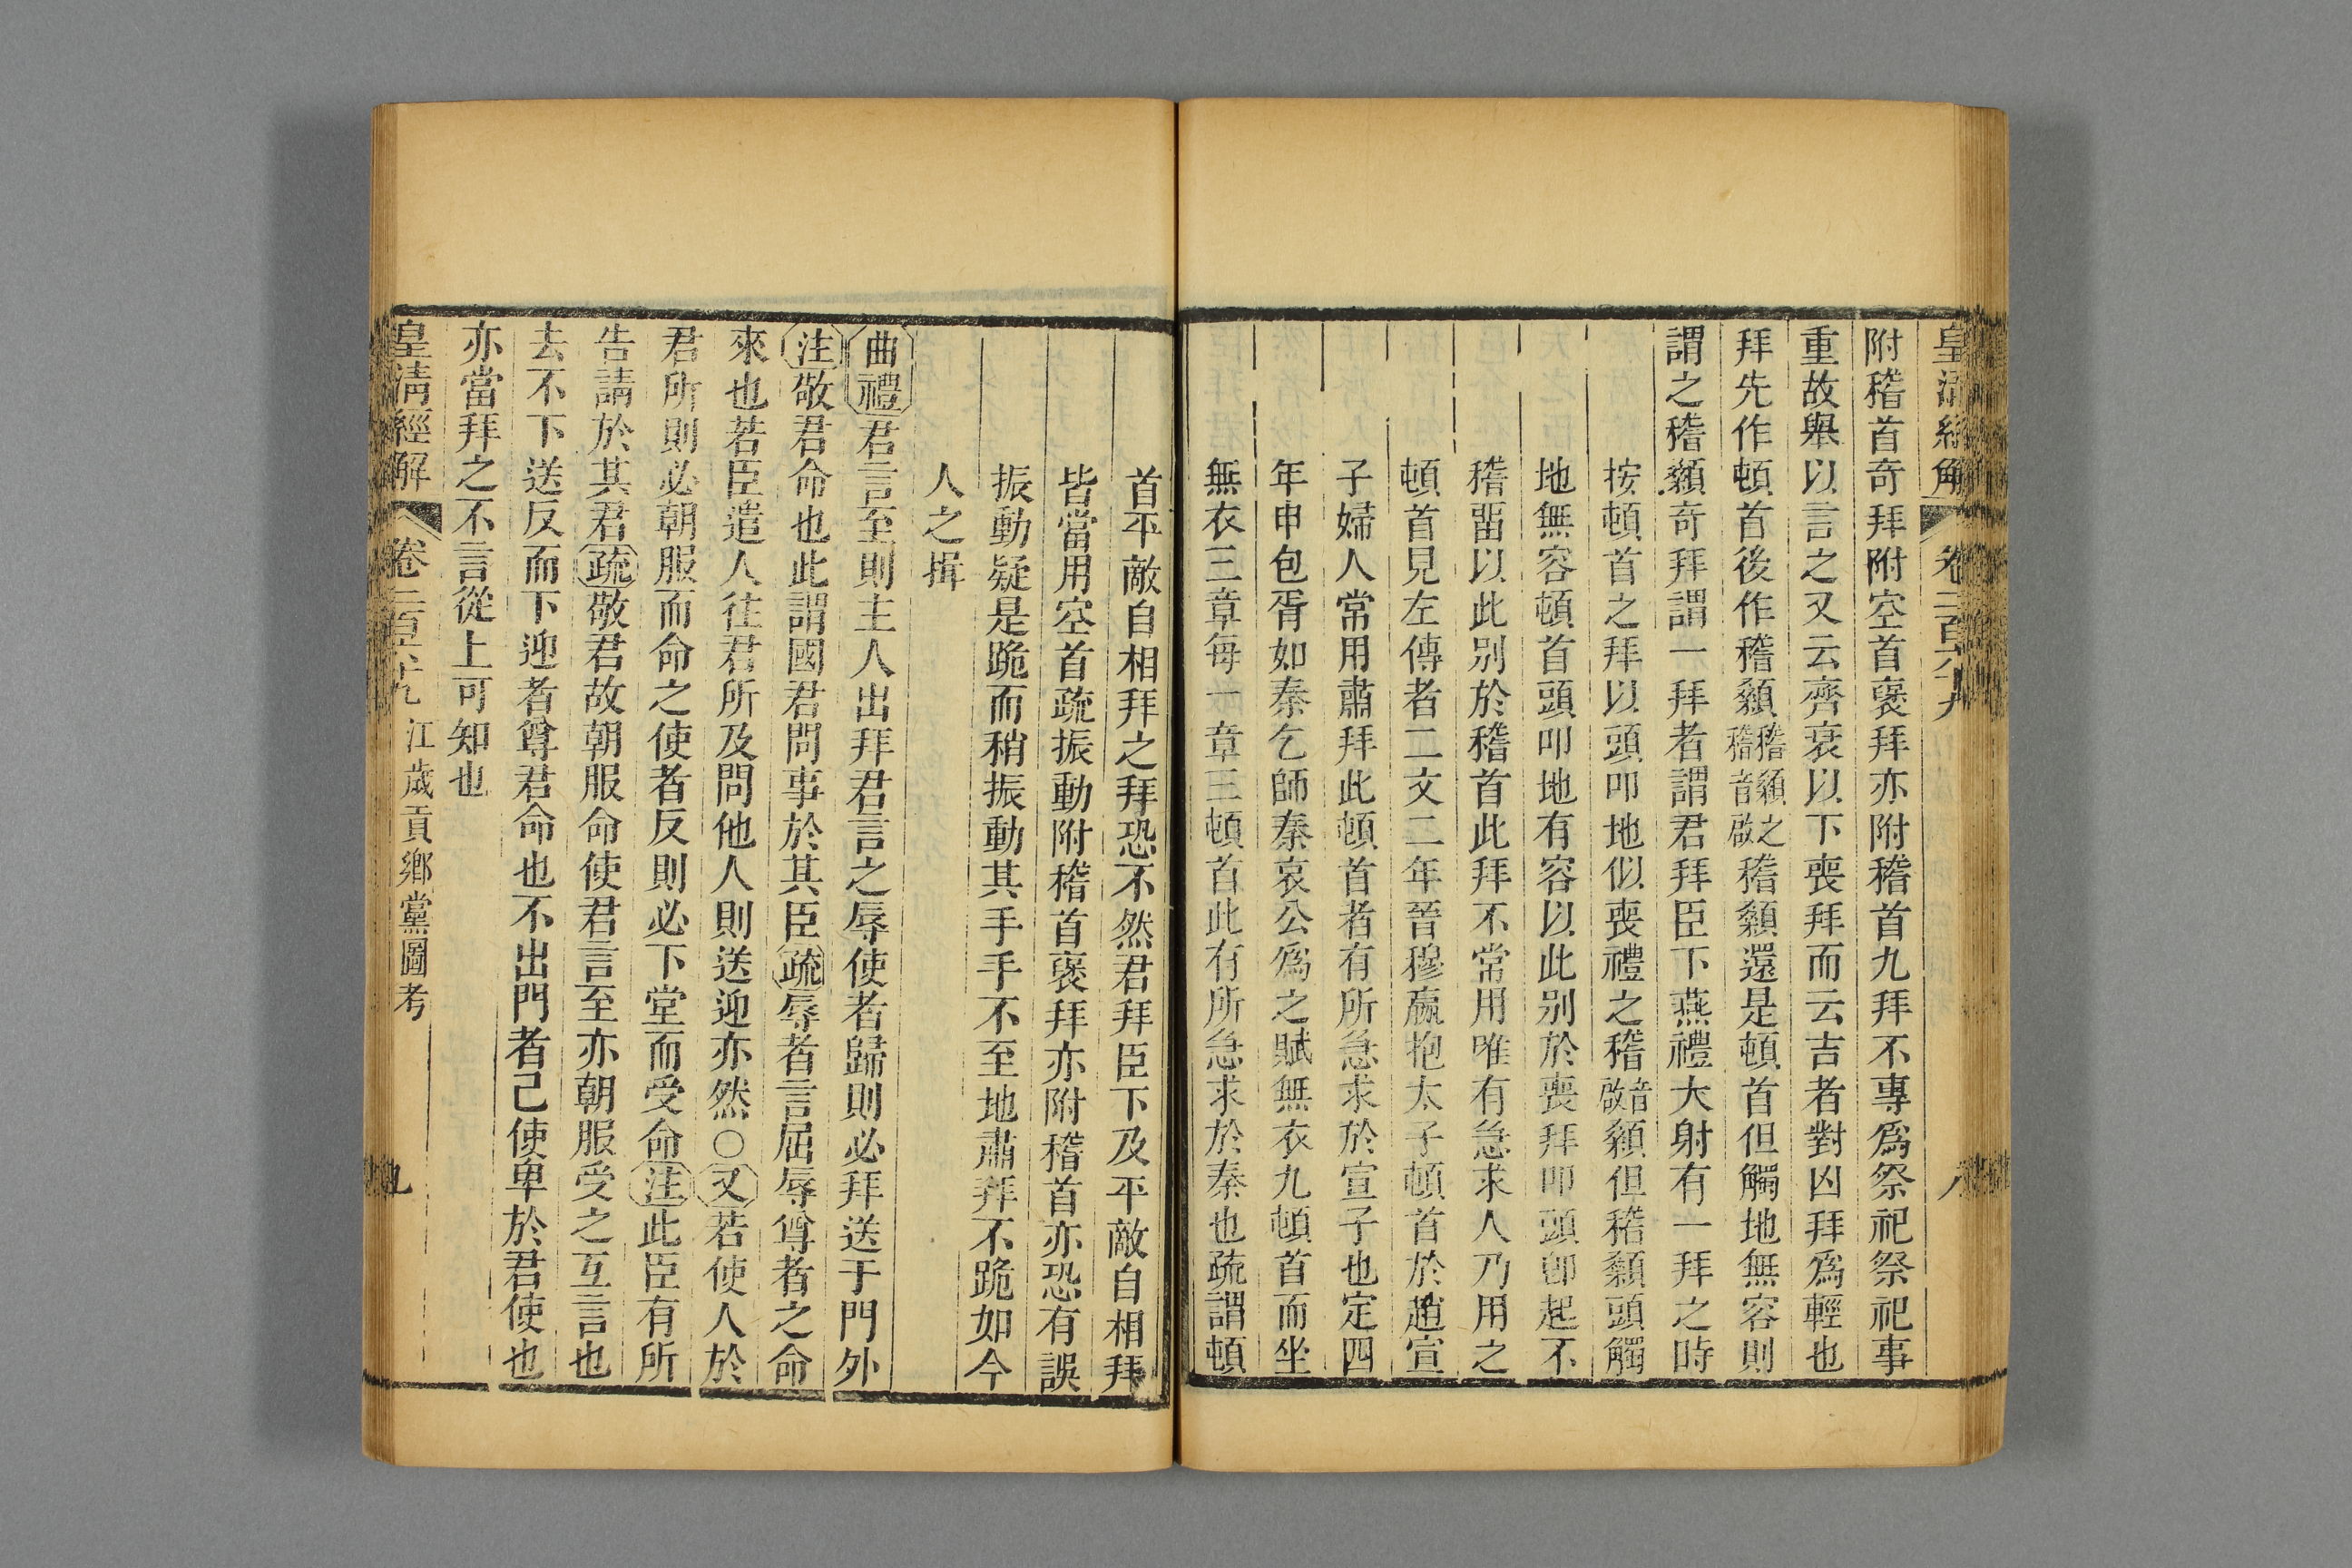 皇清經解 卷二百六十九 八
附稽首奇拜附空首褒拜亦附稽首九拜不專爲祭祀祭祀事
重故舉以言之又云齊衰以下喪拜而云吉者對凶拜爲輕也
拜先作頓首後作稽顙稽顙之稽音啟稽顙還是頓首但觸地無容則
謂之稽顙奇拜謂一拜者謂君拜臣下燕禮大射有一拜之時
按頓首之拜以頭叩地似喪禮之稽音啟顙但稽顙頭觸
地無容頓首頭叩地有容以此別於喪拜叩頭卽起不
稽畱以此別於稽首此拜不常用唯有急求人乃用之
頓首見左傳者二文二年晉穆嬴抱太子頓首於趙宣
子婦人常用肅拜此頓首者有所急求於宣子也定四
年申包胥如秦乞師秦哀公爲之賦無衣九頓首而坐
無衣三章每一章三頓首此有所急求於秦也疏謂頓
首平敵自相拜之拜恐不然君拜臣下及平敵自相拜
皆當用空首疏振動附稽首褒拜亦附稽首亦恐有誤
振動疑是跪而稍振動其手手不至地肅拜不跪如今
人之揖
曲禮君言至則主人出拜君言之辱使者歸則必拜送于門外
注敬君命也此謂國君問事於其臣疏辱者言屈辱尊者之命
來也若臣遣人往君所及問他人則送迎亦然○又若使人於
君所則必朝服而命之使者反則必下堂而受命注此臣有所
告請於其君疏敬君故朝服命使君言至亦朝服受之互言也
去不下送反而下迎者尊君命也不出門者己使卑於君使也
亦當拜之不言從上可知也
皇清經解 卷二百六十九 江歲貢鄉黨圖考 九